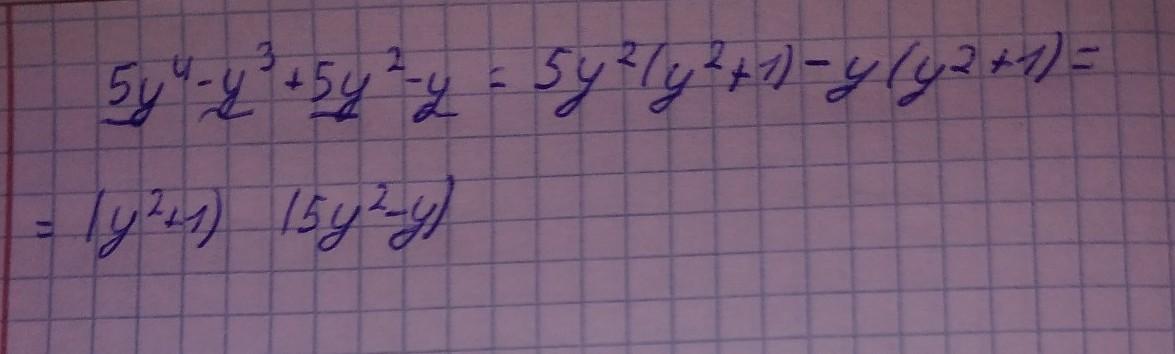 5y⁴-y³+5y²-y = 5y²(y²+1)-y(y²+1)=
= (y²+1) (5y²-y)